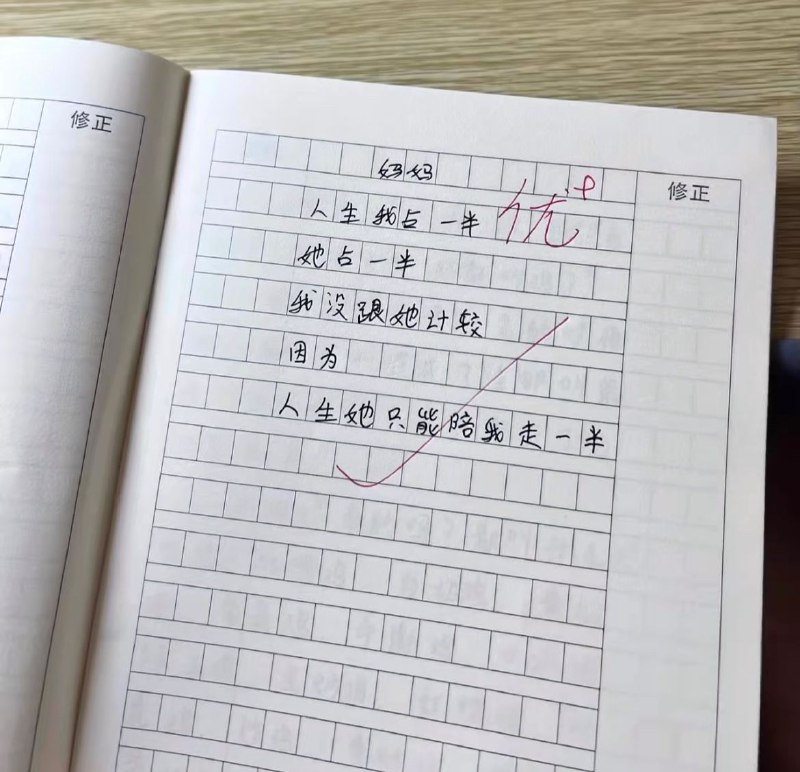 修正
修正
妈妈
优+
人生我占一半
她占一半
我没跟她计较
因为
人生她只能陪我走一半